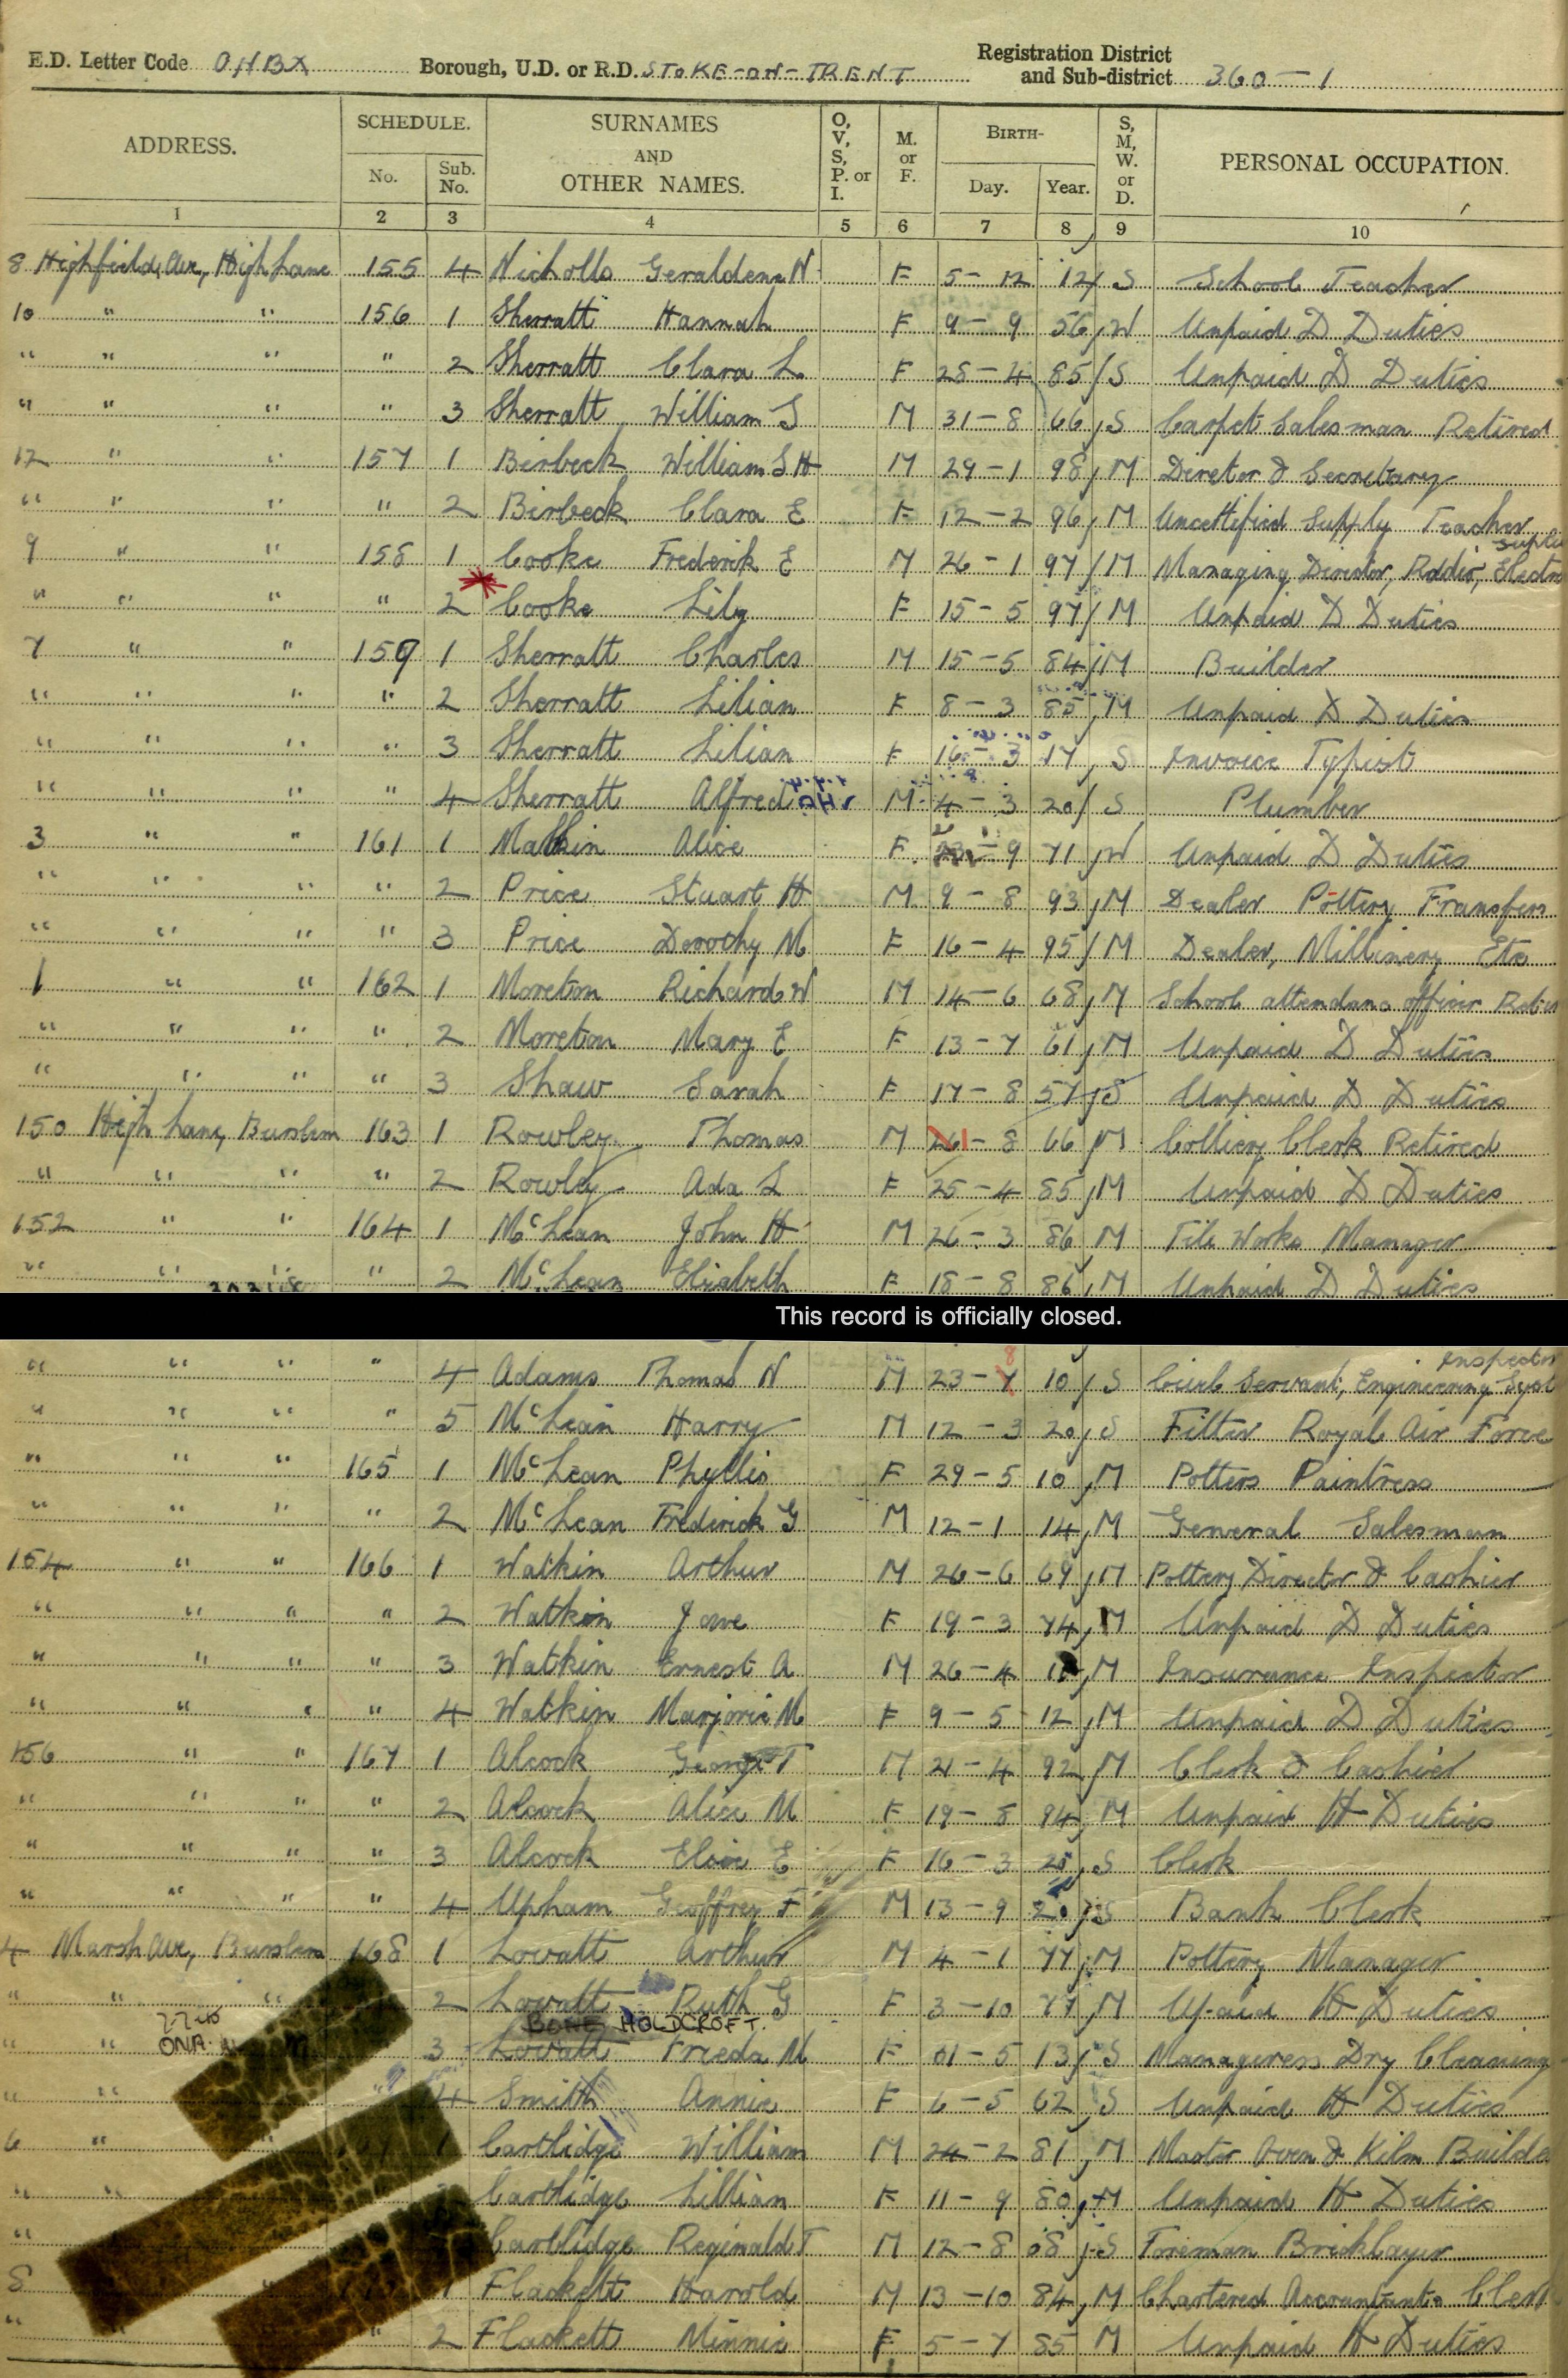 E.D. Letter Code OHBX Borough, U.D. or R.D. STOKE-ON-TRENT Registration District and Sub-district 360-1
ADDRESS. SCHEDULE. No. Sub. No. SURNAMES AND OTHER NAMES. O, V, S, P. or I. M. or F. BIRTH- Day. Year. S, M, W. or D. PERSONAL OCCUPATION.
1 2 3 4 5 6 7 8 9 10
8 Highfield Ave, High Lane 155 4 Nicholls Geraldene N F 5-12 12 S School Teacher
10 " " 156 1 Sherratt Hannah F 9-9 56 W Unpaid D Duties
" " " " 2 Sherratt Clara L F 28-4 85 S Unpaid D Duties
" " " " 3 Sherratt William S M 31-8 66 S Carpet Salesman Retired
12 " " 157 1 Birbeck William S H M 29-1 98 M Diretor & Secretary
" " " " 2 Birbeck Clara E F 12-2 96 M Uncertified Supply Teacher
9 " " 158 1 Cooke Frederik E M 26-1 97 M Managing Director, Radio, Electro
" " " " 2 Cooke Lily F 15-5 97 M Unpaid D Duties
7 " " 159 1 Sherratt Charles M 15-5 84 M Builder
" " " " 2 Sherratt Lilian F 8-3 85 M Unpaid D Duties
" " " " 3 Sherratt Lilian F 16-3 17 S Invoice Typist
" " " " 4 Sherratt Alfred M 4-3 20 S Plumber
3 " " 161 1 Malkin Alice F 9 71 W Unpaid D Duties
" " " " 2 Price Stuart H M 9-8 93 M Dealer Pottery Transfers
" " " " 3 Price Dorothy M F 16-4 95 M Dealer, Millinery Etc
1 " " 162 1 Moreton Richard W M 14-6 68 M School attendanc officer
" " " " 2 Moreton Mary E F 13-7 61 M Unpaid D Duties
" " " " 3 Shaw Sarah F 17-8 57 S Unpaid D Duties
150 High Lane, Burslem 163 1 Rowley Thomas M 8 66 M Colliery Clerk Retired
" " " " 2 Rowley Ada L F 25-4 85 M Unpaid D Duties
152 " " 164 1 McLean John H M 26-3 86 M Tile Works Manager
" " " " 2 McLean Elizabeth F 18-8 86 M Unpaid D Duties
This record is officially closed.
" " " " 4 Adams Thomas N M 23- 8 10 S Civil Servant, Engineering Inspector
" " " " 5 McLean Harry M 12-3 20 S Fitter Royal Air Force
" " " 165 1 McLean Phyllis F 29-5 10 M Potters Paintress
" " " " 2 McLean Frederick G M 12-1 14 M General Salesman
154 " " 166 1 Watkin Arthur M 26-6 69 M Pottery Director & Cashier
" " " " 2 Watkin Jane F 19-3 74 M Unpaid D Duties
" " " " 3 Watkin Ernest A M 26-4 M Insurance Inspector
" " " " 4 Watkin Marjorie M F 9-5 12 M Unpaid D Duties
156 " " 167 1 Alcock George T M 21-4 92 M Clerk & Cashier
" " " " 2 Alcock Alice M F 19-8 94 M Unpaid H Duties
" " " " 3 Alcock Elsie E F 16-3 S Clerk
" " " " 4 Upham Geoffrey F M 13-9 20 S Bank Clerk
4 Marsh Ave, Burslem 168 1 Lovatt Arthur M 4-1 77 M Pottery Manager
" " " 2 Lovatt Ruth G F 3-10 77 M Upaid H Duties
BONE HOLDCROFT.
" " 3 Lovatt Freda M F 01-5 13 S Manageress Dry Cleaning
" " 4 Smith Annie F 6-5 62 S Unpaid H Duties
6 " 1 Cartlidge William M 24-2 81 M Master Oven & Kiln Builde
" " Cartlidge Lillian F 11-9 80 M Unpaid H Duties
" Cartlidge Reginald T M 12-8 08 S Foreman Bricklayer
8 Flackett Harold M 13-10 84 M Chartered Accountants Clerk
" " 2 Flackett Minnie F 5-7 85 M Unpaid H Duties